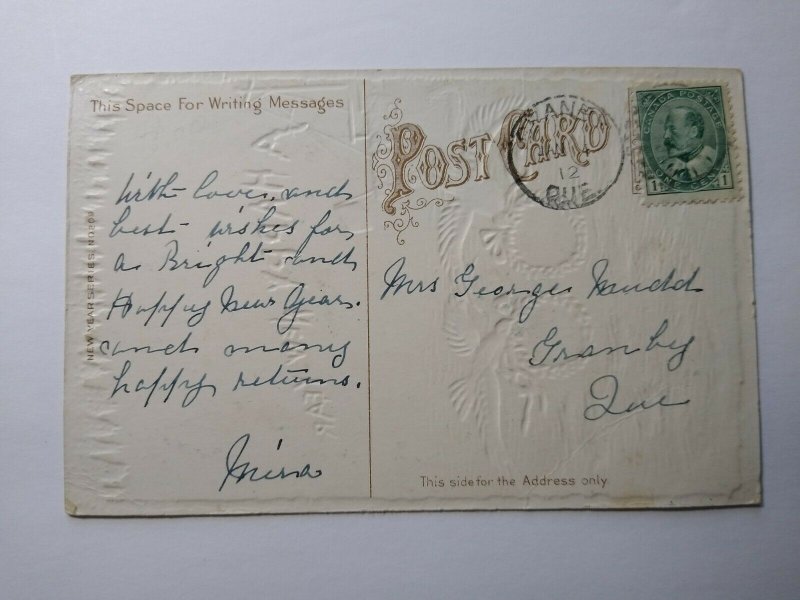 This Space For Writing Messages
POST CARD
CANADA POSTAGE
1 ONE CENT 1
12
QUE
NEW YEAR SERIES. NO 209
With love, and
best wishes for
a Bright and
Happy New Year.
and many
happy returns.
Mina
Mrs George Mudd
Granby
Que
This side for the Address only